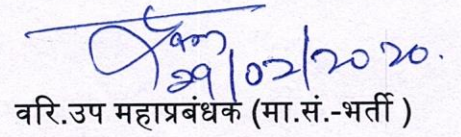 29/02/2020.
वरि.उप महाप्रबंधक (मा.सं.-भर्ती )